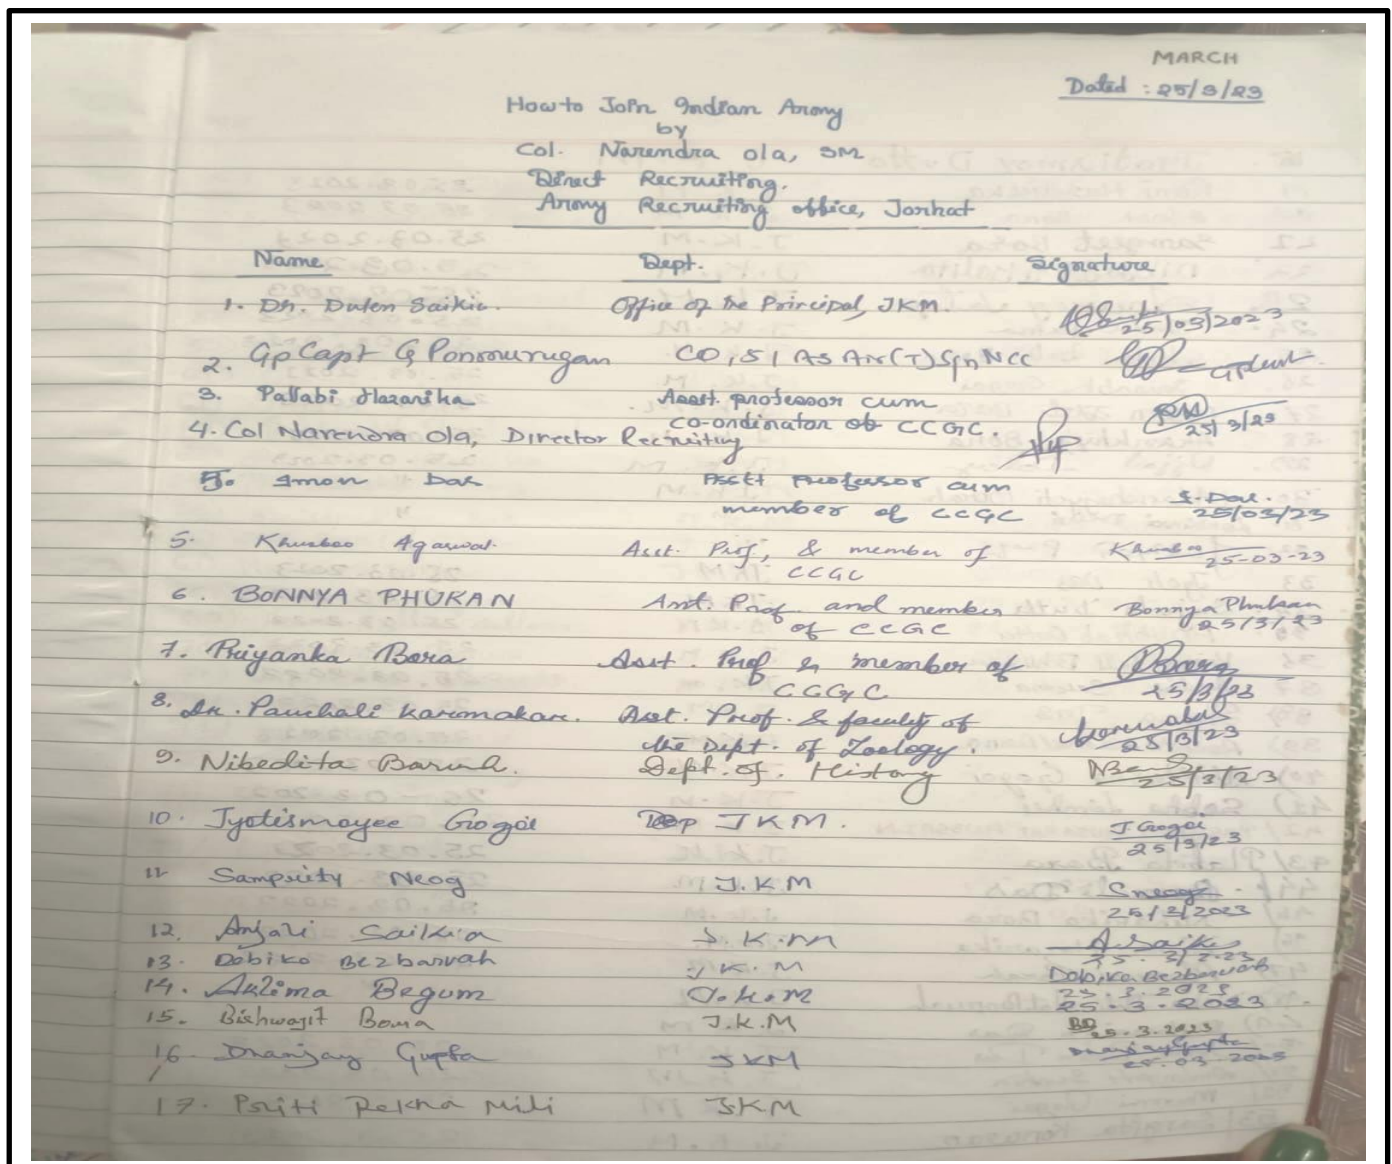 MARCH
Dated : 25/3/23
How to Join Indian Army
by
Col. Narendra Ola, SM
Direct Recruiting.
Army Recruiting office, Jorhat
Name Dept. Signature
1. Dr. Duten Saikia. Office of the Principal, JKM. 25/03/2023
2. Gp Capt G Ponmurugan CO, 51 AS AR(T) Sqn NCC
3. Pallabi Hazarika Asst. professor cum 25/3/23
co-ordinator of CCGC.
4. Col Narendra Ola, Director Recruiting
5. Imon Das Asst Professor cum S. Das.
member of CCGC 25/03/23
5. Khusboo Agarwal. Asst. Prof, & member of Khusboo 25-03-23
CCGC
6. BONNYA PHUKAN Asst. Prof. and member Bonnya Phukan
of CCGC 25/3/23
7. Priyanka Bora Asst. Prof & member of PBora
CCGC 25/3/23
8. Dr. Panchali Karmakar. Asst. Prof. & faculty of
the Dept. of Zoology. 25/3/23
9. Nibedita Baruah. Dept. of. History 25/3/23
10. Jyotismayee Gogoi Dep JKM. J. Gogoi
25/3/23
11 Sampriity Neog J.K.M Sneog
25/3/2023
12. Anjali Saikia J.K.M A. Saikia
13. Dobiko Bezbaruah J.K.M Dobiko Bezbaruah
25.3.2023
14. Aklima Begum J.K.M 25-3-2023
15. Bishwajit Bora J.K.M BB 25.3.2023
16. Dhanjay Gupta JKM Dhanjay Gupta
25.03.2023
17. Priti Rekha Mili JKM